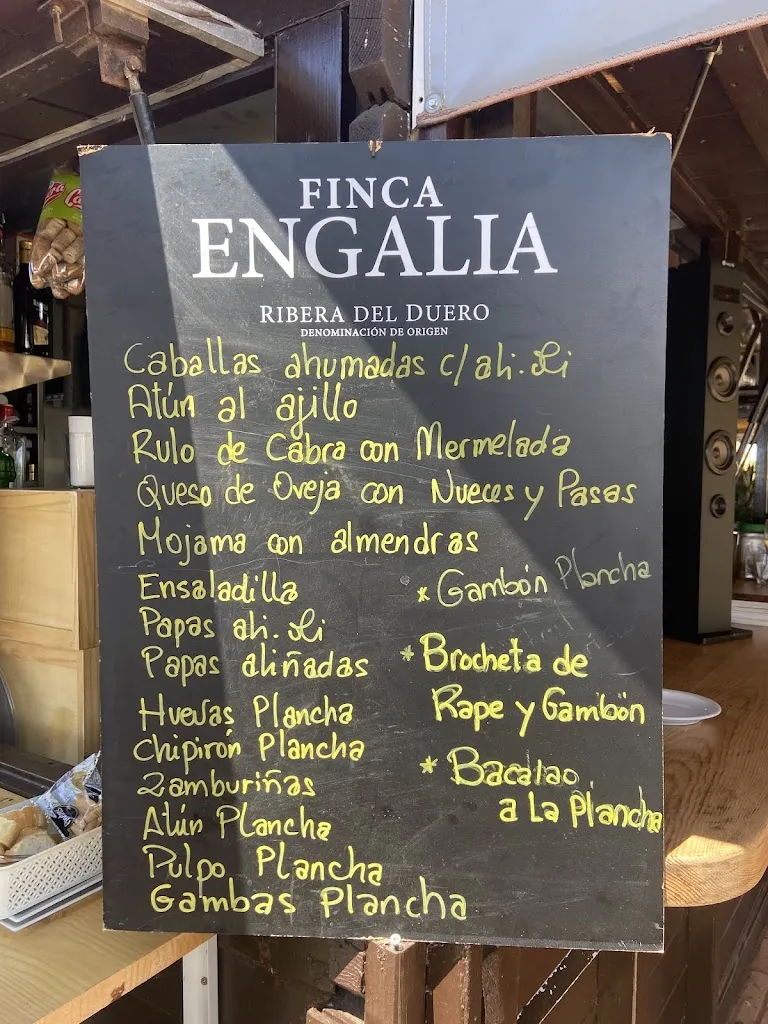 FINCA
ENGALIA
RIBERA DEL DUERO
DENOMINACIÓN DE ORIGEN
Caballas ahumadas c/ali.Oli
Atún al ajillo
Rulo de Cabra con Mermelada
Queso de Oveja con Nueces y Pasas
Mojama con almendras
Ensaladilla
Papas ali.Oli
Papas aliñadas
Huevas Plancha
Chipirón Plancha
Zamburiñas
Atún Plancha
Pulpo Plancha
Gambas Plancha
* Gambón Plancha
* Brocheta de
Rape y Gambón
* Bacalao
a La Plancha